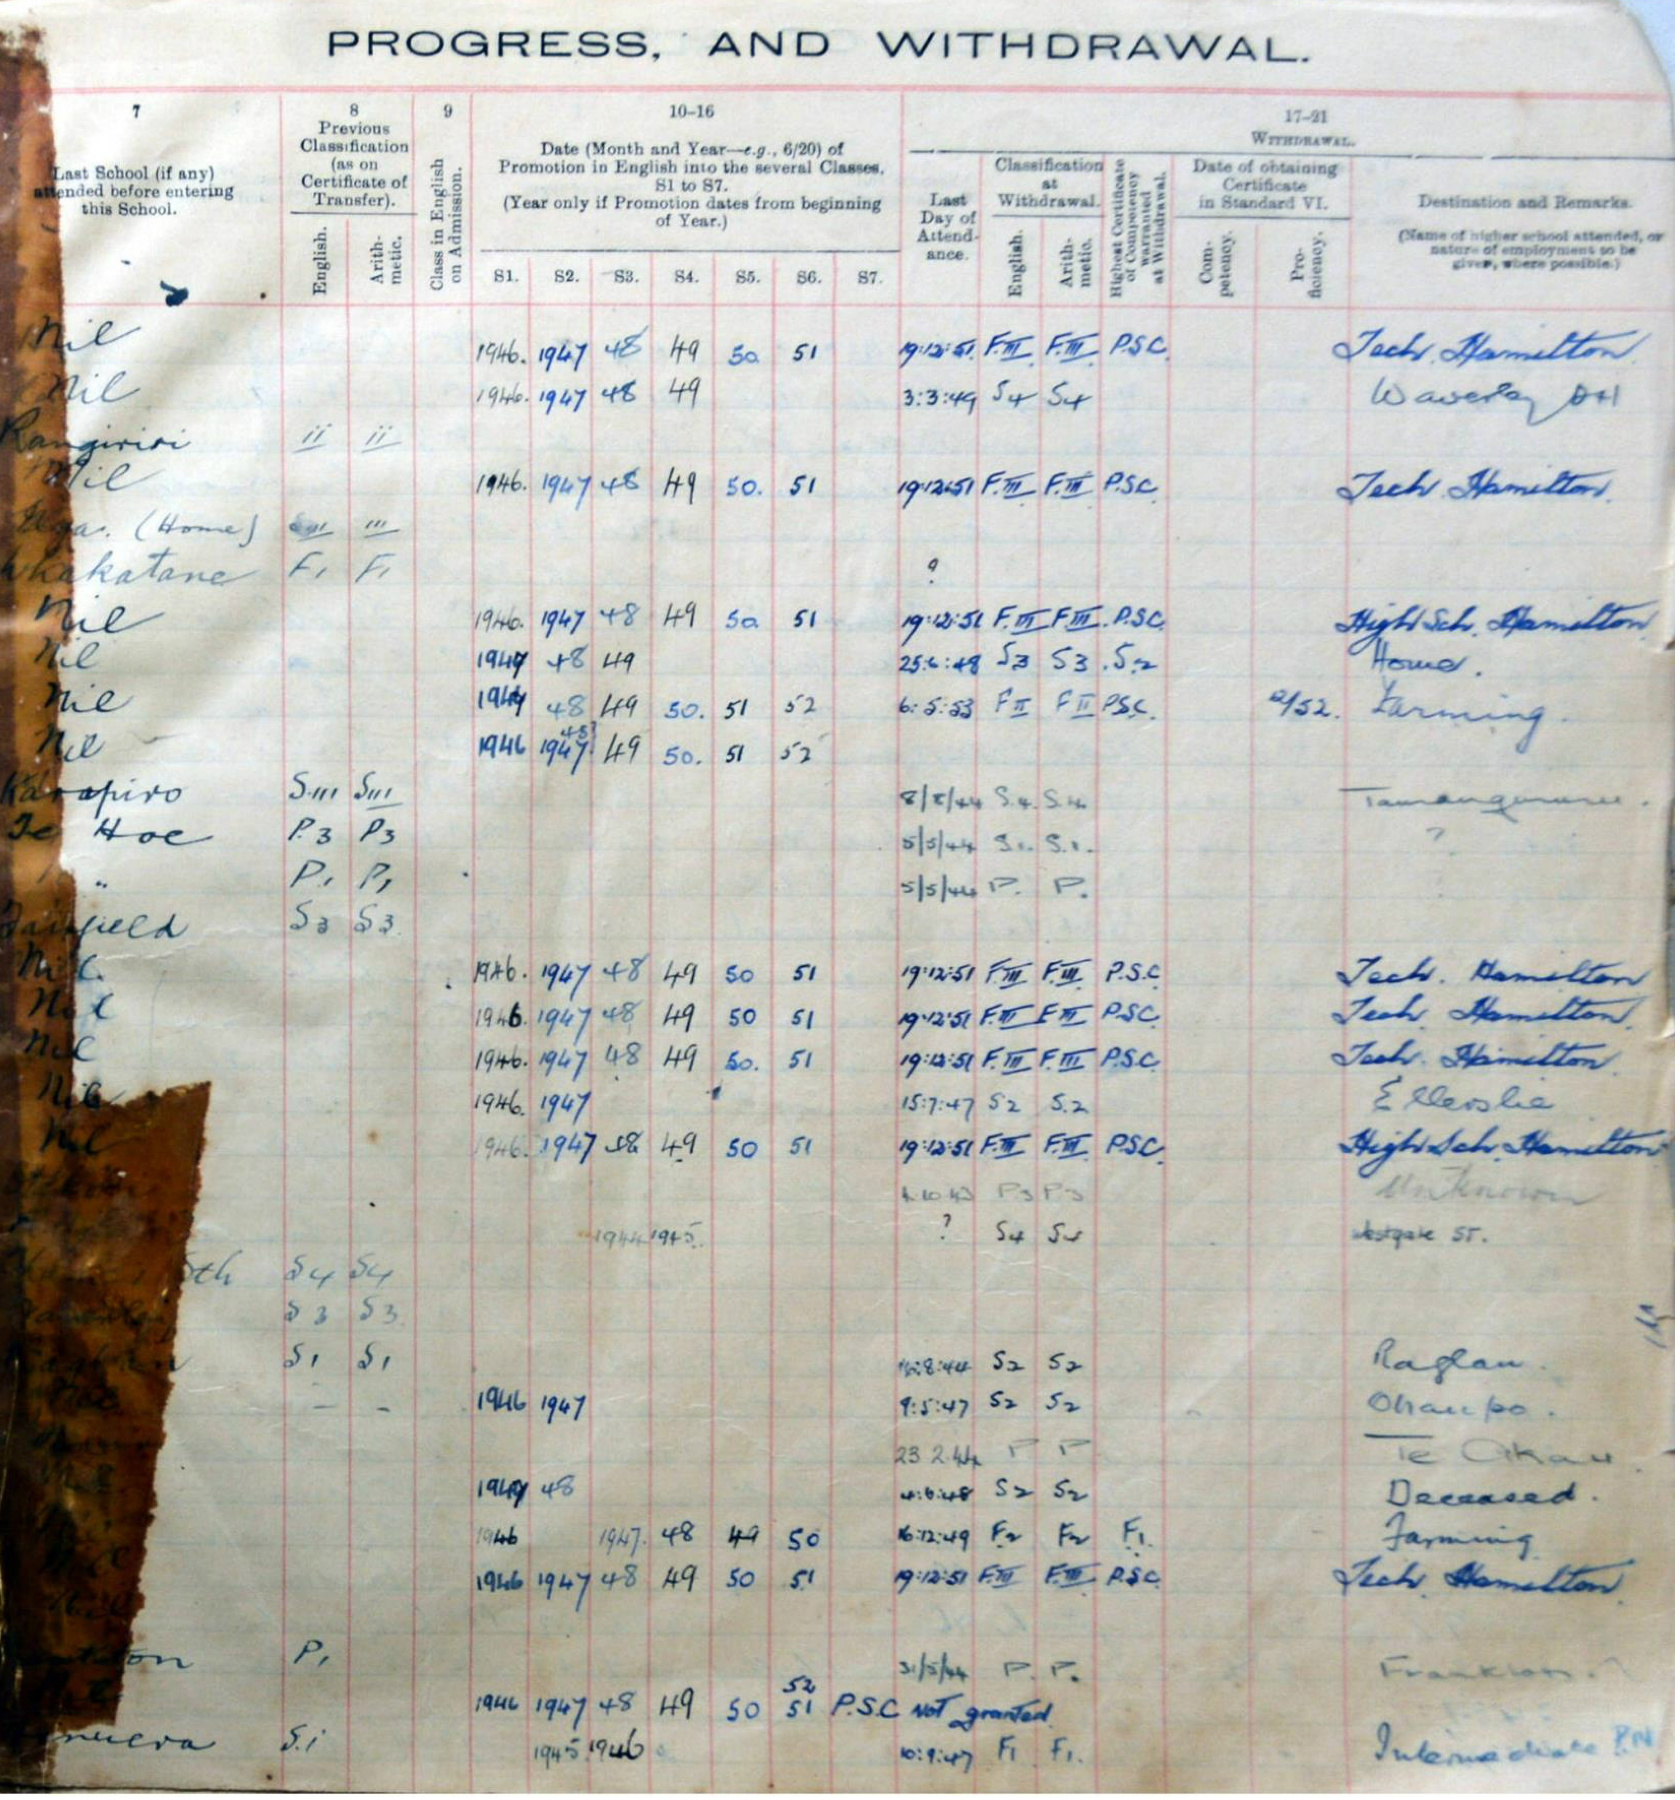 PROGRESS, AND WITHDRAWAL.
7 8 9 10–16 17–21
Last School (if any) attended before entering this School.
Previous Classification (as on Certificate of Transfer).
English. Arith-metic.
Class in English on Admission.
Date (Month and Year—e.g., 6/20) of Promotion in English into the several Classes, S1 to S7.
(Year only if Promotion dates from beginning of Year.)
S1. S2. S3. S4. S5. S6. S7.
WITHDRAWAL.
Last Day of Attend-ance.
Classification at Withdrawal.
English. Arith-metic.
Highest Certificate of Competency warranted at Withdrawal.
Date of obtaining Certificate in Standard VI.
Com-petency. Pro-ficiency.
Destination and Remarks.
(Name of higher school attended, or nature of employment to be given, where possible.)
Nil 1946. 1947 48 49 50 51 19:12:51 F.III F.III P.S.C. Tech. Hamilton
Nil 1946. 1947 48 49 3:3:49 S4 S4 Waverley
Rangiriri ii ii
Nil 1946. 1947 48 49 50. 51 19:12:51 F.III F.III P.S.C. Tech. Hamilton.
(Home) III III
Whakatane F1 F1 ?
Nil 1946. 1947 48 49 50 51 19:12:51 F.III F.III P.S.C. High Sch. Hamilton
Nil 1947 48 49 25:6:48 S3 S3 S.2 Home.
Nil 1947 48 49 50. 51 52 6:5:53 F II F II P.S.C. /52. Farming.
Nil 1946 1947 48 49 50. 51 52
Karapiro S.III SIII 8/8/44 S.4. S.4.
Te Hoe P.3 P3 5/5/44 S1. S.1. ?
" P.1 P1 5/5/44 P. P.
Fairfield S3 S3.
Nil. 1946. 1947 48 49 50 51 19:12:51 F.III F.III P.S.C Tech. Hamilton
Nil 1946. 1947 48 49 50 51 19:12:51 F.III F.III P.S.C. Tech. Hamilton.
Nil 1946. 1947 48 49 50. 51 19:12:51 F.III F.III P.S.C. Tech. Hamilton.
Nil 1946. 1947 15:7:47 S2 S.2 Ellerslie
Nil 1946. 1947 48 49 50 51 19:12:51 F.III F.III P.S.C. High Sch. Hamilton
4.10.43 P3 P3 Unknown
1944 1945. ? S4 S4 St.
S4 S4
S3 S3.
S1 S1 :8:44 S2 S2 Raglan.
– – 1946 1947 9:5:47 S2 S2 Ohaupo.
23.2.44 P P Te Akau.
1947 48 4:6:48 S2 S2 Deceased.
1946 1947. 48 49 50 16:12:49 F2 F2 F1. Farming
1946 1947 48 49 50 51 19:12:51 F.III F.III P.S.C. Tech Hamilton.
P1 31/5/44 P. P. Frankton.
1946 1947 48 49 50 51 52 P.S.C Not granted.
S.i 1945 1946 10:9:47 F1 F1. Intermediate P.N